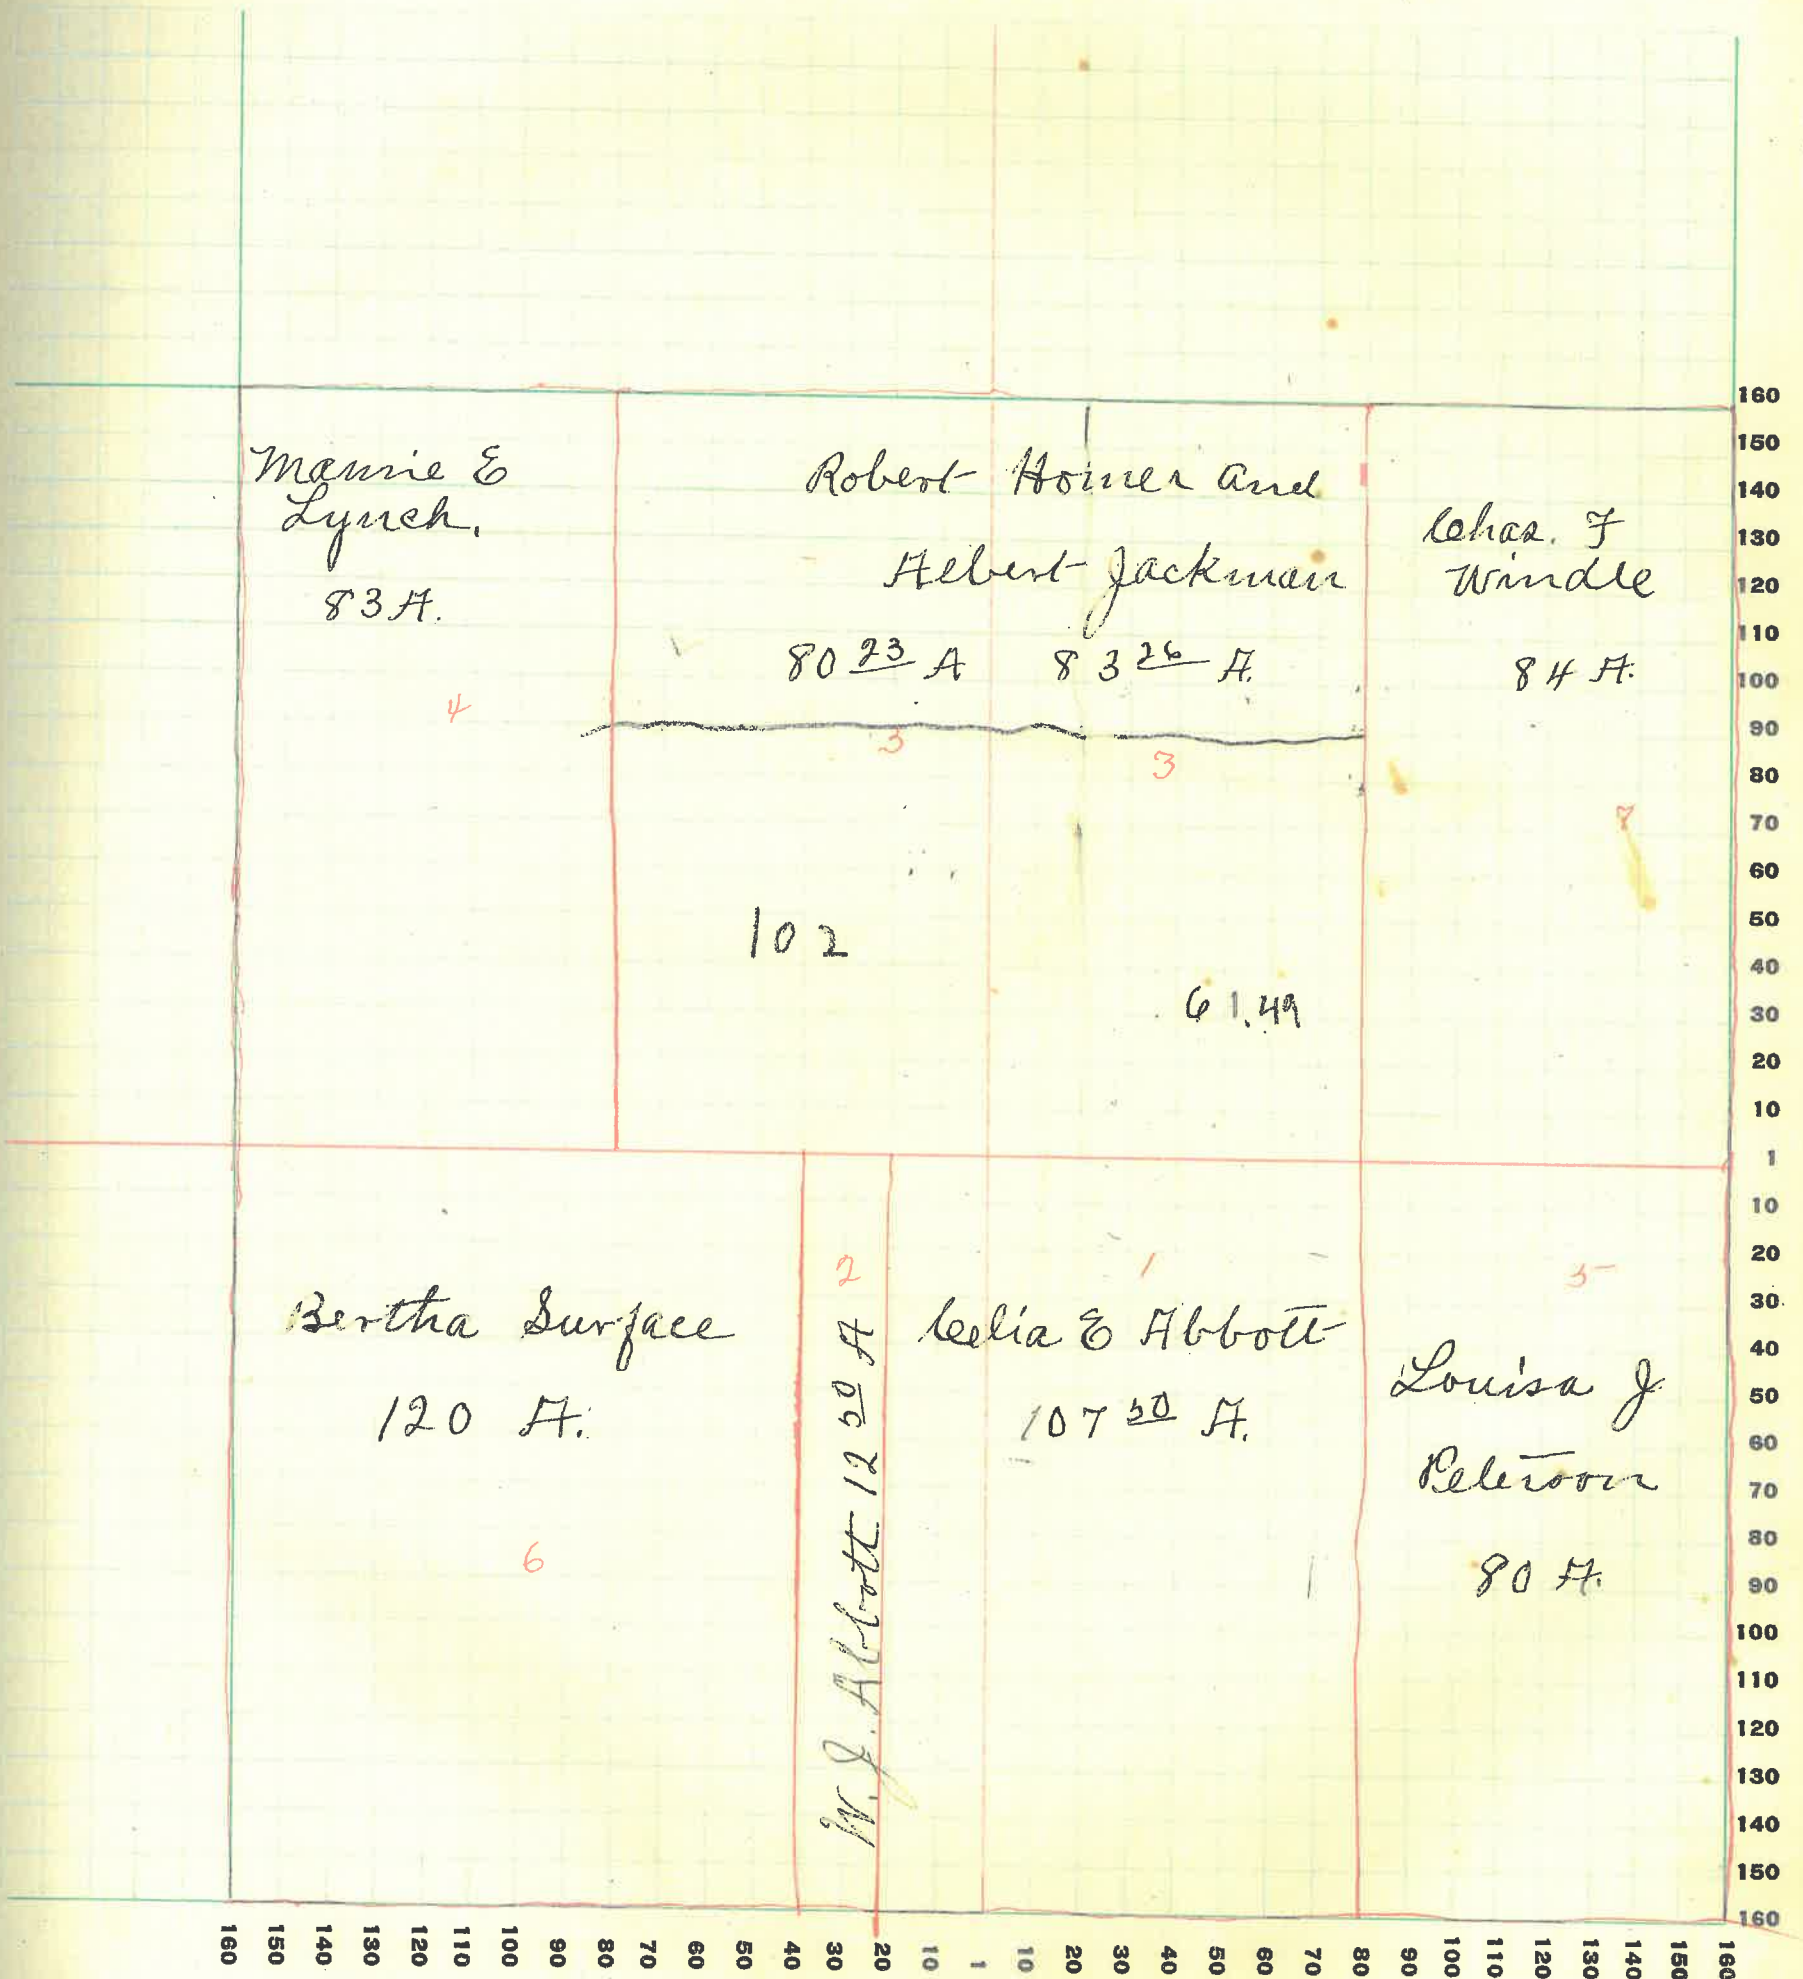 Mamie E
Lynch.
83 A.
4
Robert Homer and
Albert Jackman
80 23 A 83 26 A.
3
3
102
61.49
Chas. F
Windle
84 A.
7
Bertha Surface
120 A.
6
2
W. J. Abbott 12 50 A
1
Celia E Abbott
107 50 A.
5
Louisa J
Peterson
80 A.
160
150
140
130
120
110
100
90
80
70
60
50
40
30
20
10
1
10
20
30
40
50
60
70
80
90
100
110
120
130
140
150
160
160 150 140 130 120 110 100 90 80 70 60 50 40 30 20 10 1 10 20 30 40 50 60 70 80 90 100 110 120 130 140 150 160